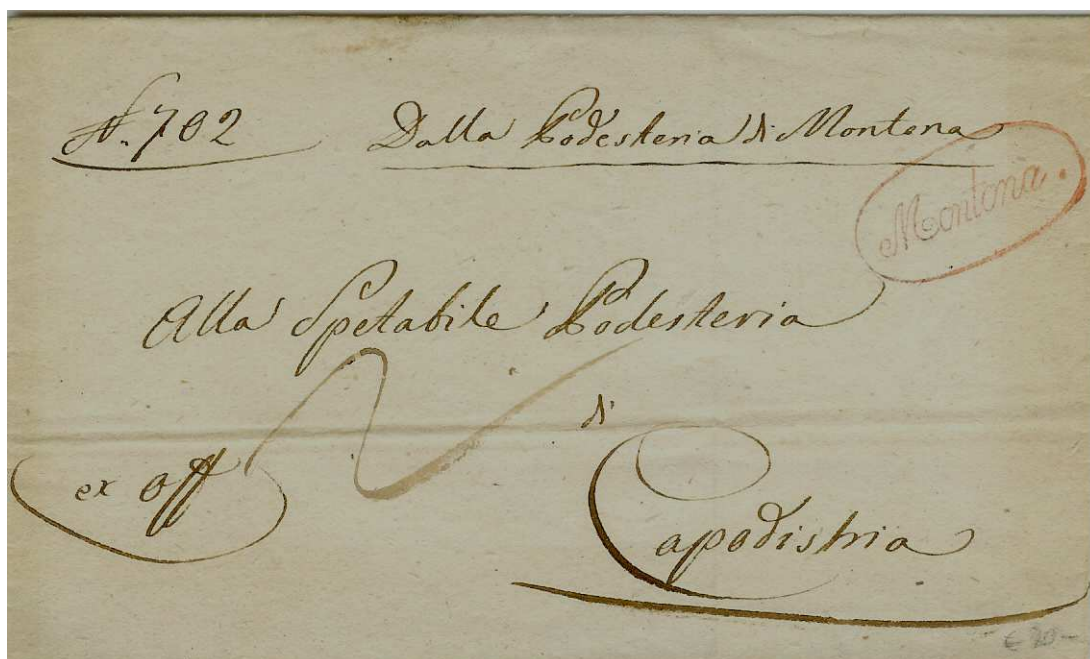 N. 702
Dalla Podesteria di Montona
Montona.
Alla Spetabile Podesteria
di
ex off
Capodistria